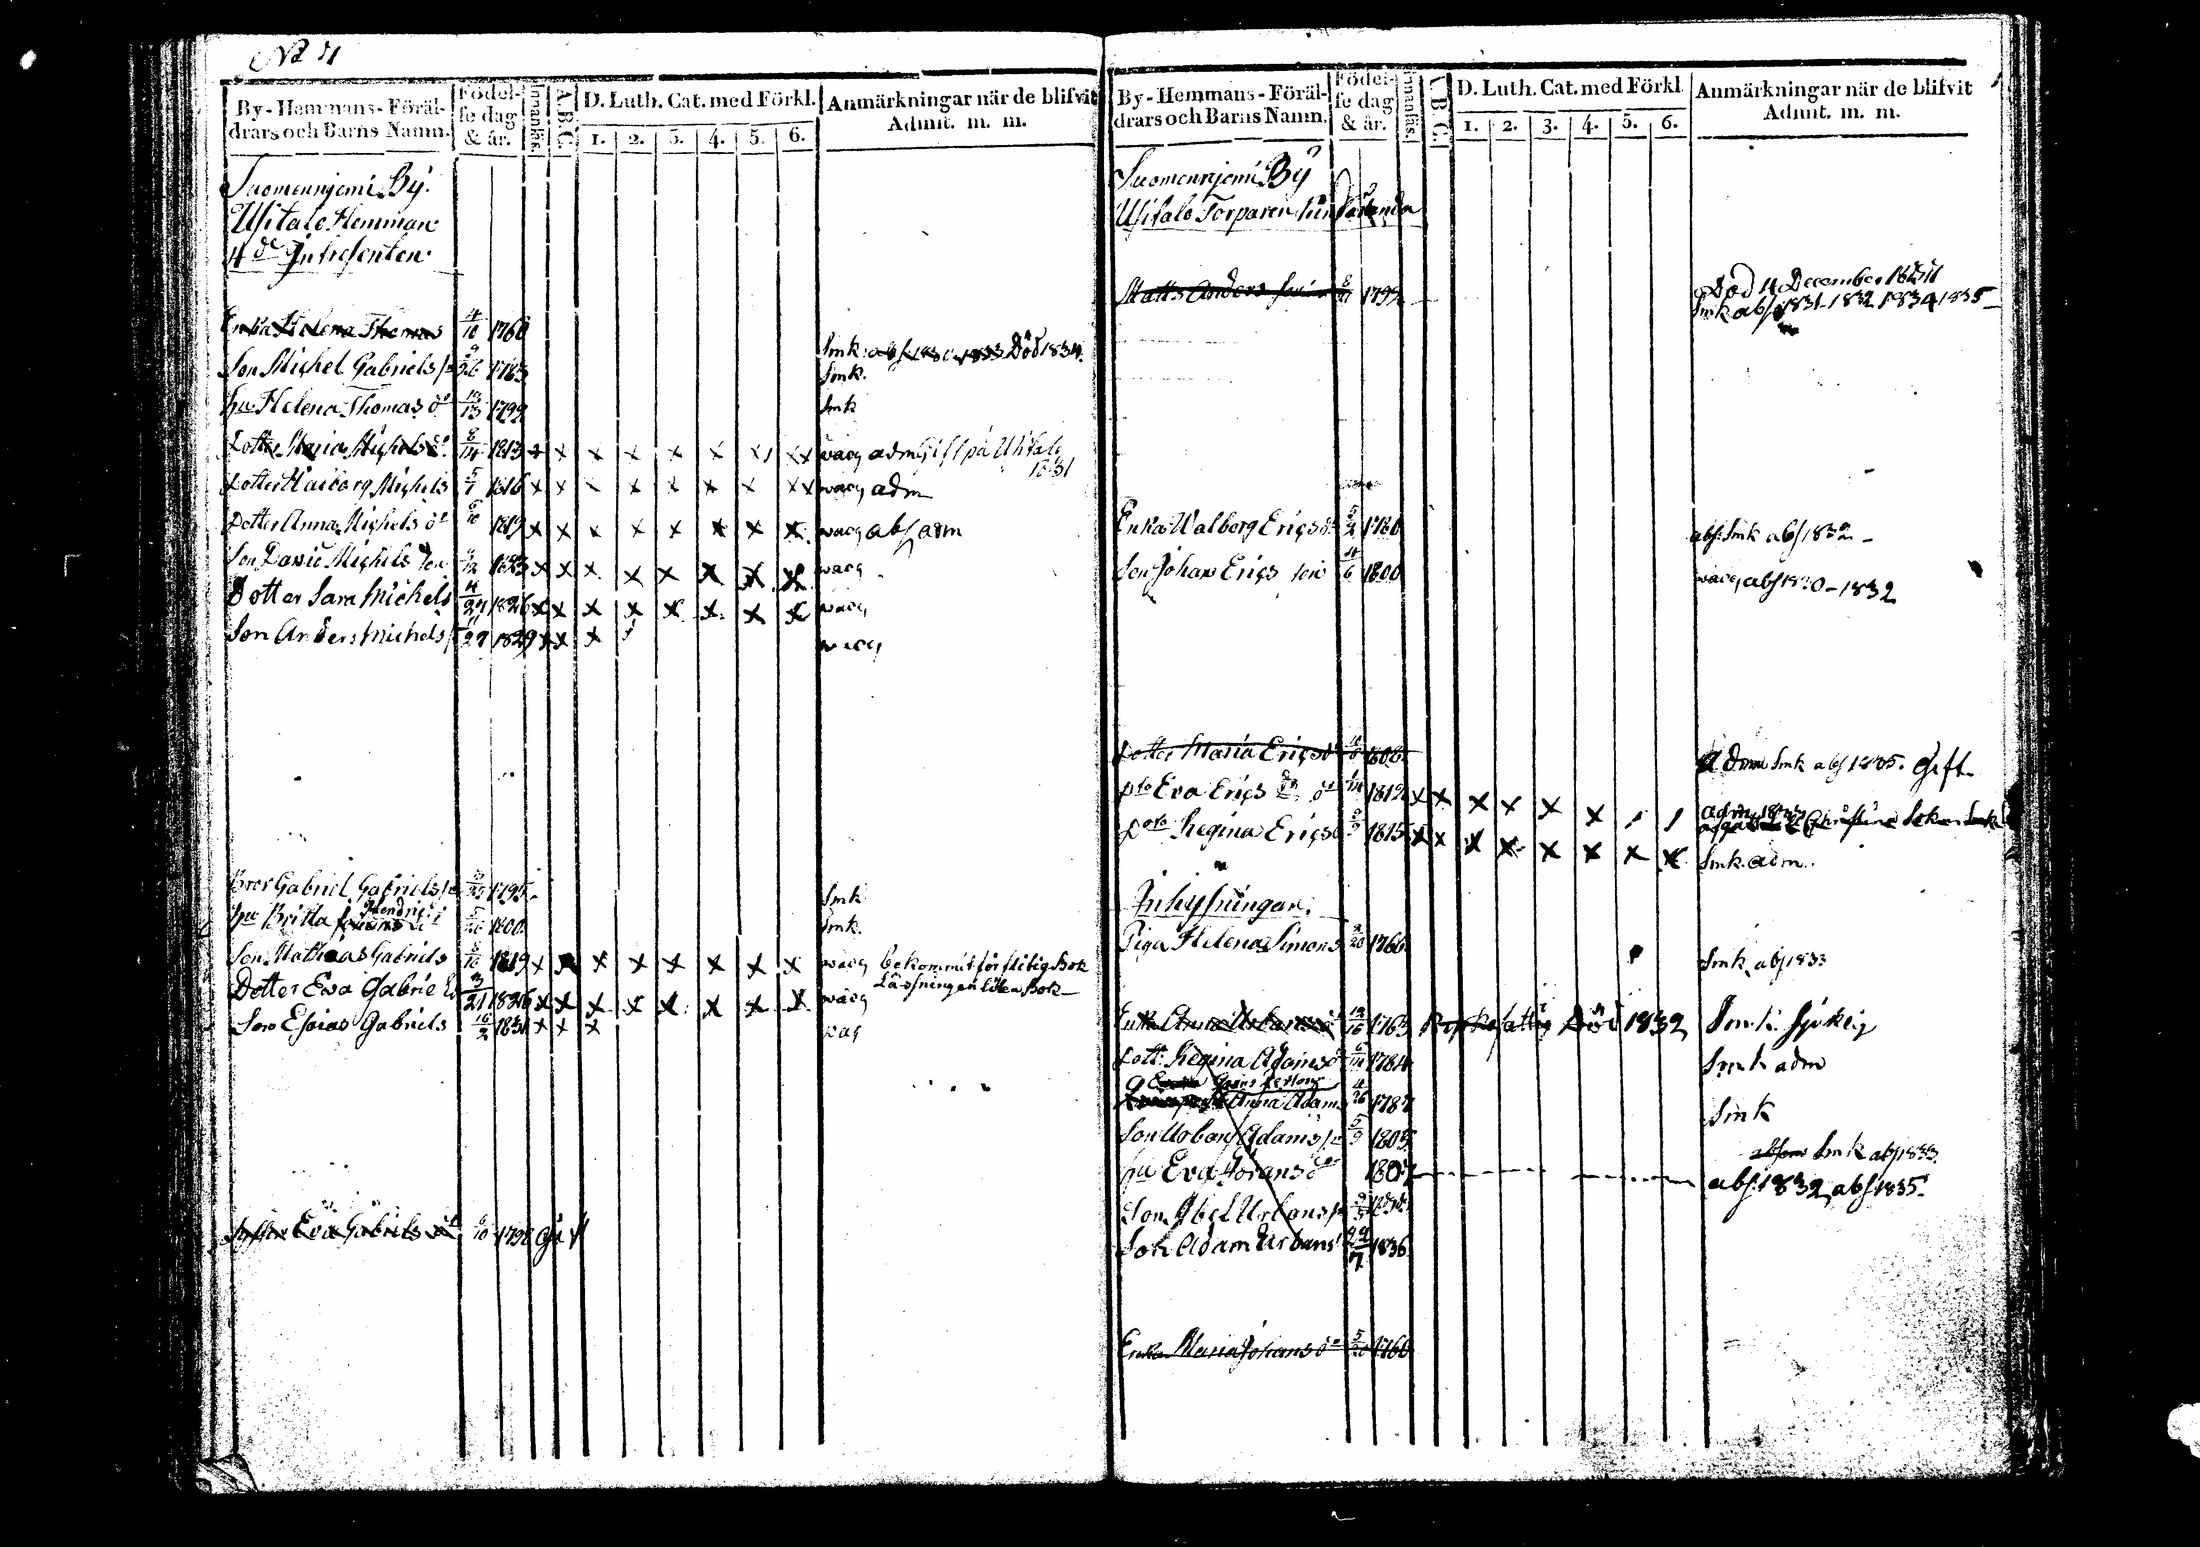 No 4
By-Hemmans-Föräl-
drars och Barns Namn.
Födel-
se dag
& år.
Innanläs.
A.B.C.
D. Luth. Cat. med Förkl.
1. 2. 3. 4. 5. 6.
Anmärkningar när de blifvit
Admit. m. m.
Suomenniemi By.
Usitalo Hemman
4de Intressenten
Enka Helena Thomas 4/10 1760
Smk: abs 1831 1833 Död 1834.
Son Michel Gabriels 1783 Smk.
hu Helena Thomas dr 1792 Smk
Dotter Maria Michels dr 8/14 1813 x x x x x x x x x wacg adm Gift på Usitalo
1831
Dotter Walborg Michels 5/1 1816 x x x x x x x x wacg adm
Dotter Anna Michels dr 6/10 1819 x x x x x x x x wacg abs adm
Son David Michels son 1823 x x x x x x x x wacg
Dotter Sara Michels 4/27 1826 x x x x x x x x wacg
Son Anders Michels 1829 x x x wacg
Bror Gabriel Gabriels 1795 Smk
hu Britta Hendrics 1800 Smk.
Son Mathias Gabriels 1819 x x x x x x x wacg bekommit för flitig Bok
Läsningen liten Bok
Dotter Eva Gabriels 3/21 1826 x x x x x x x x wacg
Son Esaias Gabriels 16/2 1831 x x x wag
Syster Eva Gabriels dr 6/10 1798 Gift
By-Hemmans-Föräl-
drars och Barns Namn.
Födel-
se dag
& år.
Innanläs.
A.B.C.
D. Luth. Cat. med Förkl
1. 2. 3. 4. 5. 6.
Anmärkningar när de blifvit
Admit. m. m.
Suomenniemi By
Usitalo Torparen
Matts Anders son 1799 Död 4 December
Smk abs 1831-1832 1834 1835
Enka Walborg Erics dr 5/2 1780 abs. Smk abs 1832
Son Johan Erics son 4/6 1800 wacg abs 1830-1832
Dotter Maria Erics dr 1808 Adm Smk abs 1835. Gift.
Dto Eva Erics dr 1812 x x x x x x adm
Dotr Regina Erics 1815 x x x x x x x x Smk. adm.
Inhysningar.
Piga Helena Simons 1766 Smk abs 1833
Enk Anna Urbans 12/16 1763 Död 1832 Smk. Sjuklig
Dott: Regina Adams dr 6/14 1784 Smk adm
Anna Adams 4/26 1787 Smk
Son Urban Adams 5/9 1805 Smk abs 1833.
hu Eva Görans dr 1807 abs. 1832, abs. 1835.
Son Abel Urbans
Son Adam Urbans 1836
Enka Maria Johans dr 5/20 1760